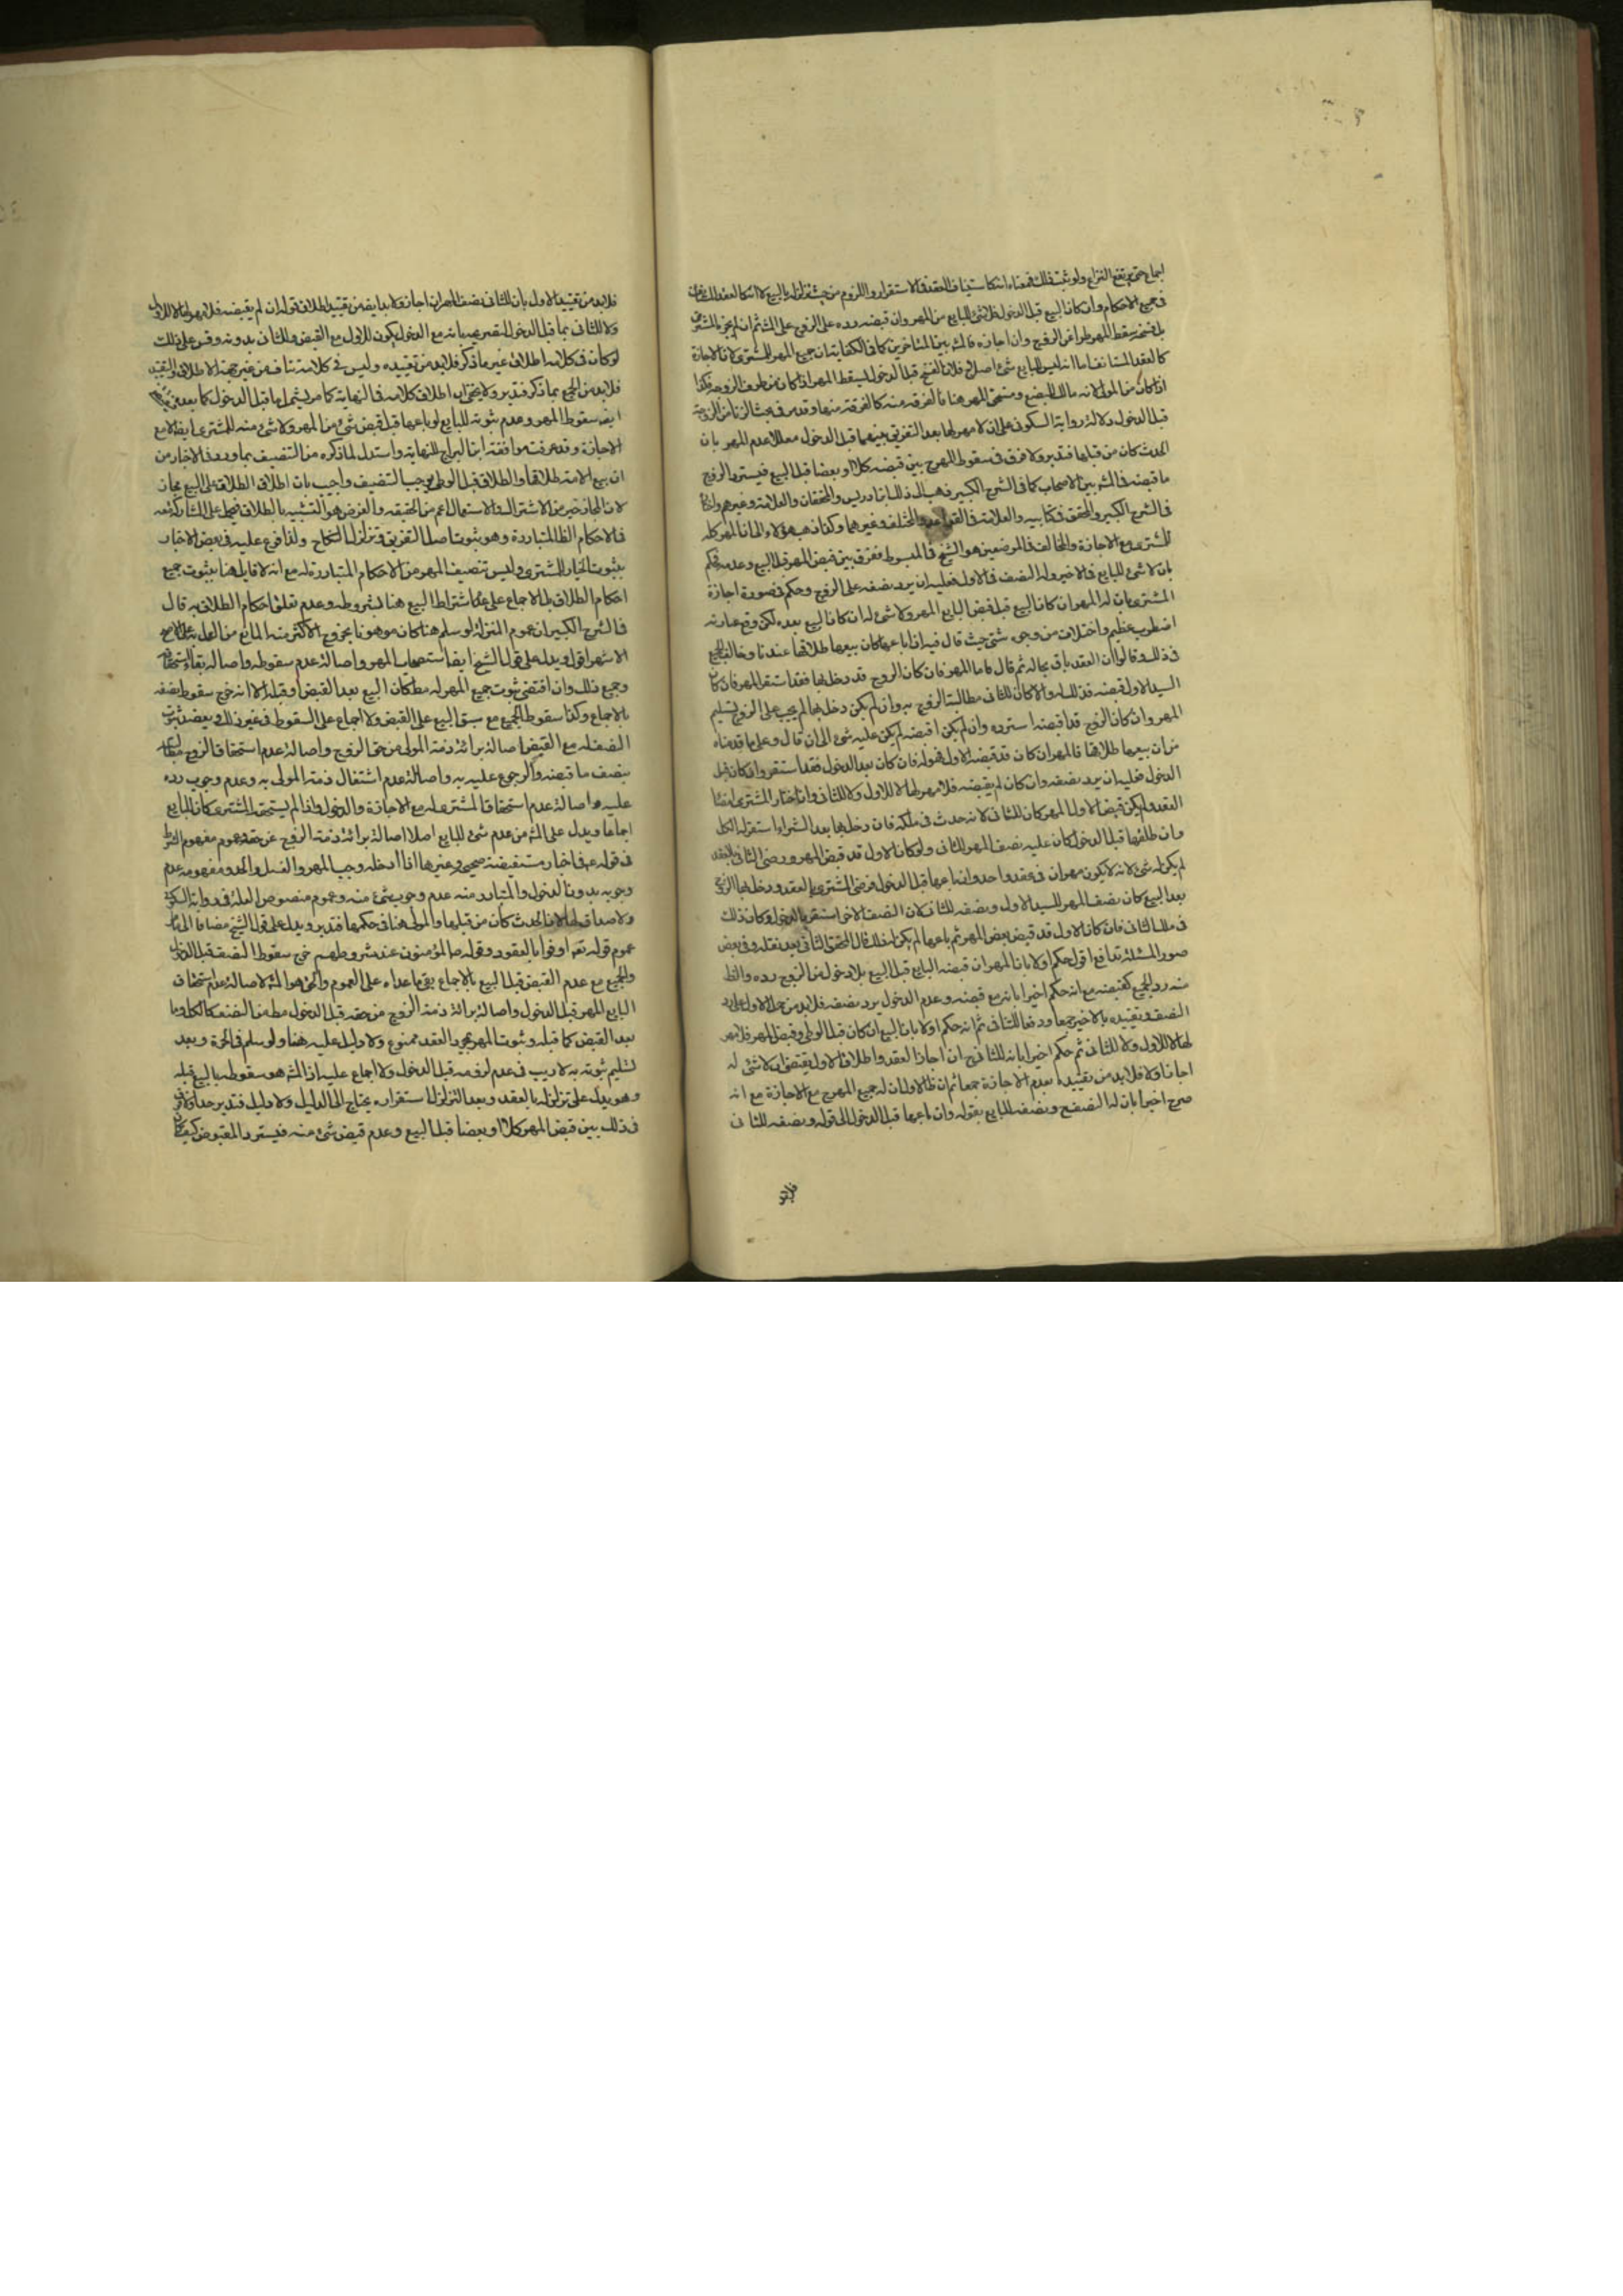 اجماع حتى يرتفع النزاع ولو ثبت ذلك فمعناه انه كاستيناف العقد في الاستقرار واللزوم من حيث تزلزله بالبيع لا انه كالعقد المستانف
في جميع الاحكام وان كان البيع قبل الدخول فلا شئ للبايع من المهر وان قبضه رده على الزوج على المش ثم ان لم يجز المشتري
بل فسخ سقط المهر طرا عن الزوج وان اجازه فالمش بين المتاخرين كما في الكفاية ان جميع المهر للمشتري لان الاجازة
كالعقد المستانف اما انه ليس للبايع شئ اصلا فلان الفسخ قبل الدخول يسقط المهر اذا كان من طرف الزوجة فكذا
اذا كان من المولى لانه مالك البضع ومستحق المهر هنا فالفرقة منه كالفرقة منها وقد مر في بحث الزنا من الزوجة
قبل الدخول دلالة رواية السكوني على ان لا مهر لها بعد التفريق بينهما قبل الدخول معللا عدم المهر بان
الحدث كان من قبلها فتدبر ولا فرق في سقوط المهر بين قبضه كلا او بعضا قبل البيع فيسترد الزوج
ما قبضه في المش بين الاصحاب كما في الشرح الكبير ذهب الى ذلك ابن ادريس والمحققان والعلامة وغيرهم
في الشرح الكبير والمحقق في كتابيه والعلامة في القواعد والمختلف وغيرهما وكذا ذهب هؤلاء الى ان المهر كله
للمشتري مع الاجازة والمخالف في الموضعين هو الشيخ في المبسوط ففرق بين قبض المهر قبل البيع وعدمه فحكم
بان لا شئ للبايع في الاخير وله النصف في الاول فعليه ان يرد نصفه على الزوج وحكم في صورة اجازة
المشتري بان له المهر ان كان البيع قبل قبض البايع المهر ولا شئ له ان كان البيع بعده لكن وقع في عبارته
اضطراب عظيم واختلاف من وجوه شتى حيث قال فيه اذا باعها كان بيعها طلاقها عندنا وخالف الجميع
في ذلك وقالوا ان العقد باق بحاله ثم قال فاما المهر فان كان الزوج قد دخل بها فقد استقر المهر فان كان
السيد الاول قبضه فذلك له والا كان للثاني مطالبة الزوج به وان لم يكن دخل بها لم يجب على الزوج تسليم
المهر وان كان الزوج قد اقبضه استرده وان لم يكن اقبضه لم يكن عليه شئ الى ان قال وعلى ما قدمناه
من ان بيعها طلاقها فالمهر ان كان قد قبضه الاول فهو له فان كان بعد الدخول فقد استقر وان كان قبل
الدخول فعليه ان يرد نصفه وان كان لم يقبضه فلا مهر لها لا للاول ولا للثاني وان اختار المشتري امضاء
العقد ولم يكن قبض الاول المهر كان للثاني لانه حدث في ملكه فان دخل بها بعد الشراء استقر له الكل
وان طلقها قبل الدخول كان عليه نصف المهر للثاني ولو كان الاول قد قبض المهر ورضي الثاني بالعقد
لم يكن له شئ لانه لا يكون مهران في عقد واحد وان باعها قبل الدخول فرضي المشتري بالعقد ودخل بها الزوج
بعد البيع كان نصف المهر للسيد الاول ونصفه للثاني لان النصف الاخر استقر بالدخول وكان ذلك
في ملك الثاني فان كان الاول قد قبض بعض المهر ثم باعها لم يكن له ذلك قال المحقق الثاني بعد نقله وفي بعض
صور المسئلة تدافع اقول حكم اولا بان المهر ان قبضه البايع قبل البيع بلا دخول من الزوج رده والظ
منه رد الجميع كقبضه مع انه حكم اخيرا بانه مع قبضه وعدم الدخول يرد نصفه فلا بد من حمل الاول على رد
النصف وتقييده بالاخير جمعا ودفعا للتنافي ثم انه حكم اولا بان البيع ان كان قبل الوطي وقبض المهر فلا مهر
لها لا للاول ولا للثاني ثم حكم اخيرا بانه للثاني ح ان اجاز العقد واطلاق الاول يقتضي ان لا شئ له
اجاز اولا فلا بد من تقييده بعدم الاجازة جمعا ثم ان ظ الاول ان له جميع المهر ح مع الاجازة مع انه
صرح اخيرا بان له النصف ح ونصفه للبايع بقوله وان باعها قبل الدخول الى قوله ونصفه للثاني
فلابد من تقييد الاول بان للثاني نصف المهر ان اجاز ولابد ايضا من تقييد اطلاق قوله ان لم يقبضه فلا مهر لها لا للاول
ولا للثاني بما قبل الدخول لتصريحه بانه مع الدخول يكون للاول مع القبض وللثاني بدونه وقس على ذلك
لو كان في كلامه اطلاق غير ما ذكر فلابد من تقييده وليس في كلامه تناف من غير جهة الاطلاق والتقييد
فلابد من الجمع بما ذكر فتدبر ولا يخفى ان اطلاق كلامه في النهاية كما مر يشمل ما قبل الدخول كما بعده
ايض سقوط المهر وعدم ثبوته للبايع لو باعها قبل قبض شئ من المهر ولا شئ منه للمشتري ايضا الا مع
الاجازة وقد عرفت موافقة ابن البراج للنهاية واستدل لما ذكره من التنصيف بما ورد في الاخبار من
ان بيع الامة طلاقها والطلاق قبل الوطي يوجب التنصيف واجيب بان اطلاق الطلاق على البيع مجاز
لان المجاز خير من الاشتراك والاستعمال اعم من الحقيقة والغرض هو التشبيه بالطلاق فيحمل على المشاركة معه
في الاحكام الظاهرة المتبادرة وهو ثبوت اصل التفريق وتزلزل النكاح ولذا فرع عليه في بعض الاخبار
بثبوت الخيار للمشتري وليس تنصيف المهر من الاحكام المتبادرة له مع انه لا قابل هنا بثبوت جميع
احكام الطلاق بل الاجماع على عدم اشتراط البيع هنا بشروطه وعدم تعلق احكام الطلاق به قال
في الشرح الكبير ان عموم المنزلة لو سلم هنا كان موهونا بخروج الاكثر منه المانع من العمل به على الاصح
الاشهر اقول ويدل على قول الشيخ ايضا استصحاب المهر واصالة عدم سقوطه واصالة بقاء استحقاقه
وجميع ذلك وان اقتضى ثبوت جميع المهر له مط كان البيع بعد القبض او قبله الا انه خرج سقوط نصفه
بالاجماع وكذا سقوط الجميع مع سبق البيع على القبض ولا اجماع على السقوط في غير ذلك ويعضد ثبوت
النصف له مع القبض اصالة برائة ذمة المولى من حق الزوج واصالة عدم استحقاق الزوج مطالبته
بنصف ما قبضه والرجوع عليه به واصالة عدم اشتغال ذمة المولى به وعدم وجوب رده
عليه واصالة عدم استحقاق المشتري له مع الاجازة والدخول واذا لم يستحقه المشتري كان للبايع
اجماعا ويدل على المش من عدم شئ للبايع اصلا اصالة برائة ذمة الزوج عن حقه وعموم مفهوم الشرط
في قوله ع في اخبار مستفيضة صحيح وغيرها اذا ادخله وجب المهر والغسل والحد ومفهومه عدم
وجوبه بدون الدخول والمتبادر منه عدم وجوب شئ منه وعموم منصوص العلة في رواية السكوني
ولا صداق لها لان الحدث كان من قبلها والمولى هنا في حكمها فتدبر ويدل على قول الشيخ مضافا الى ما مر
عموم قوله تعه اوفوا بالعقود وقوله ص المؤمنون عند شروطهم خرج سقوط النصف قبل الدخول
والجميع مع عدم القبض قبل البيع بالاجماع بقي ما عداه على العموم والحق هو المش لاصالة عدم استحقاق
البايع المهر قبل الدخول واصالة برائة ذمة الزوج من حقه قبل الدخول مط من النصف كالكل وما
بعد القبض كما قبله وثبوت المهر بمجرد العقد ممنوع ولا دليل عليه هنا ولو سلم في الحرة وبعد
تسليم ثبوته به لا ريب في عدم لزومه قبل الدخول ولا اجماع عليه اذ المش هو سقوطه بالبيع قبله
وهو يدل على تزلزله بالعقد وبعد التزلزل استقراره يحتاج الى الدليل ولا دليل فتدبر جدا ولا فرق
في ذلك بين قبض المهر كلا او بعضا قبل البيع وعدم قبض شئ منه فيسترد المقبوض كيف كان